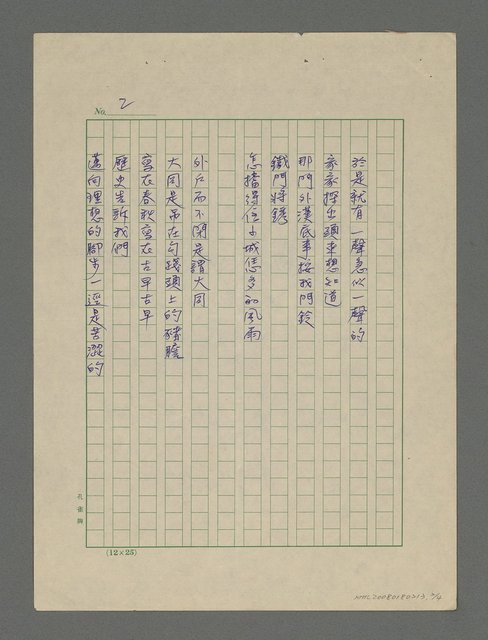 No. 2
於是就有一聲急似一聲的
家家探出頭來想知道
那門外漢底事按我門鈴
鐵門將銹
怎擋得住山城恁多的風雨
外戶而不閉是謂大同
大同是吊在勾踐頭上的豬膽
寫在春秋寫在古早古早
歷史告訴我們
邁向理想的腳步一逕是苦澀的
孔雀牌
(12×25)
NMTL20080180213, 2/4